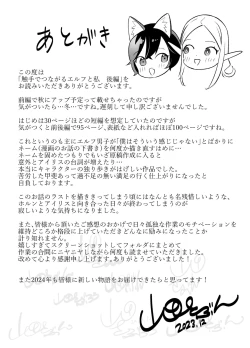 あとがき
この度は
「触手でつながるエルフと私　後編」を
お読みいただきありがとうございます。
前編で秋にアップ予定って載せちゃったのですが
気がついたら…冬…ですね。遅刻して申し訳ございませんでした。
はじめは30ページほどの短編を想定していたのですが
気がつくと前後編で95ページ、表紙など入れればほぼ100ページですね。
これというのも主にエルフ男子が「僕はそういう感じじゃない」とばかりに
ネーム(漫画のお話の下書き)を何度か描き直すはめに…
ネームを固めたつもりでもいざ原稿作成に入ると
意外とアイリスの自語りが増えたり…
本当にキャラクターの独り歩きがはげしい作品でした。
苦労した甲斐あって過不足の無い満足の行く仕上がりになったと
自負しております。
このお話のラストを描ききってしまう頃にはなんとも名残惜しいような、
ホルンとアイリスと向き合った日々が終わってしまうのが
寂しいような気持ちになりました。
また、皆様から頂いたご感想のおかげで日々孤独な作業のモチベーションを
維持どころか格段に上げていただきどんなに励みになったことか
計り知れません。
嬉しすぎてスクリーンショットしてフォルダにまとめて
作業の合間にニヤニヤしながら何度も読ませていただきました。
改めて心より感謝申し上げます。ありがとうございました!
また2024年も皆様に新しい物語をお届けできたらと思ってます!
2023.12